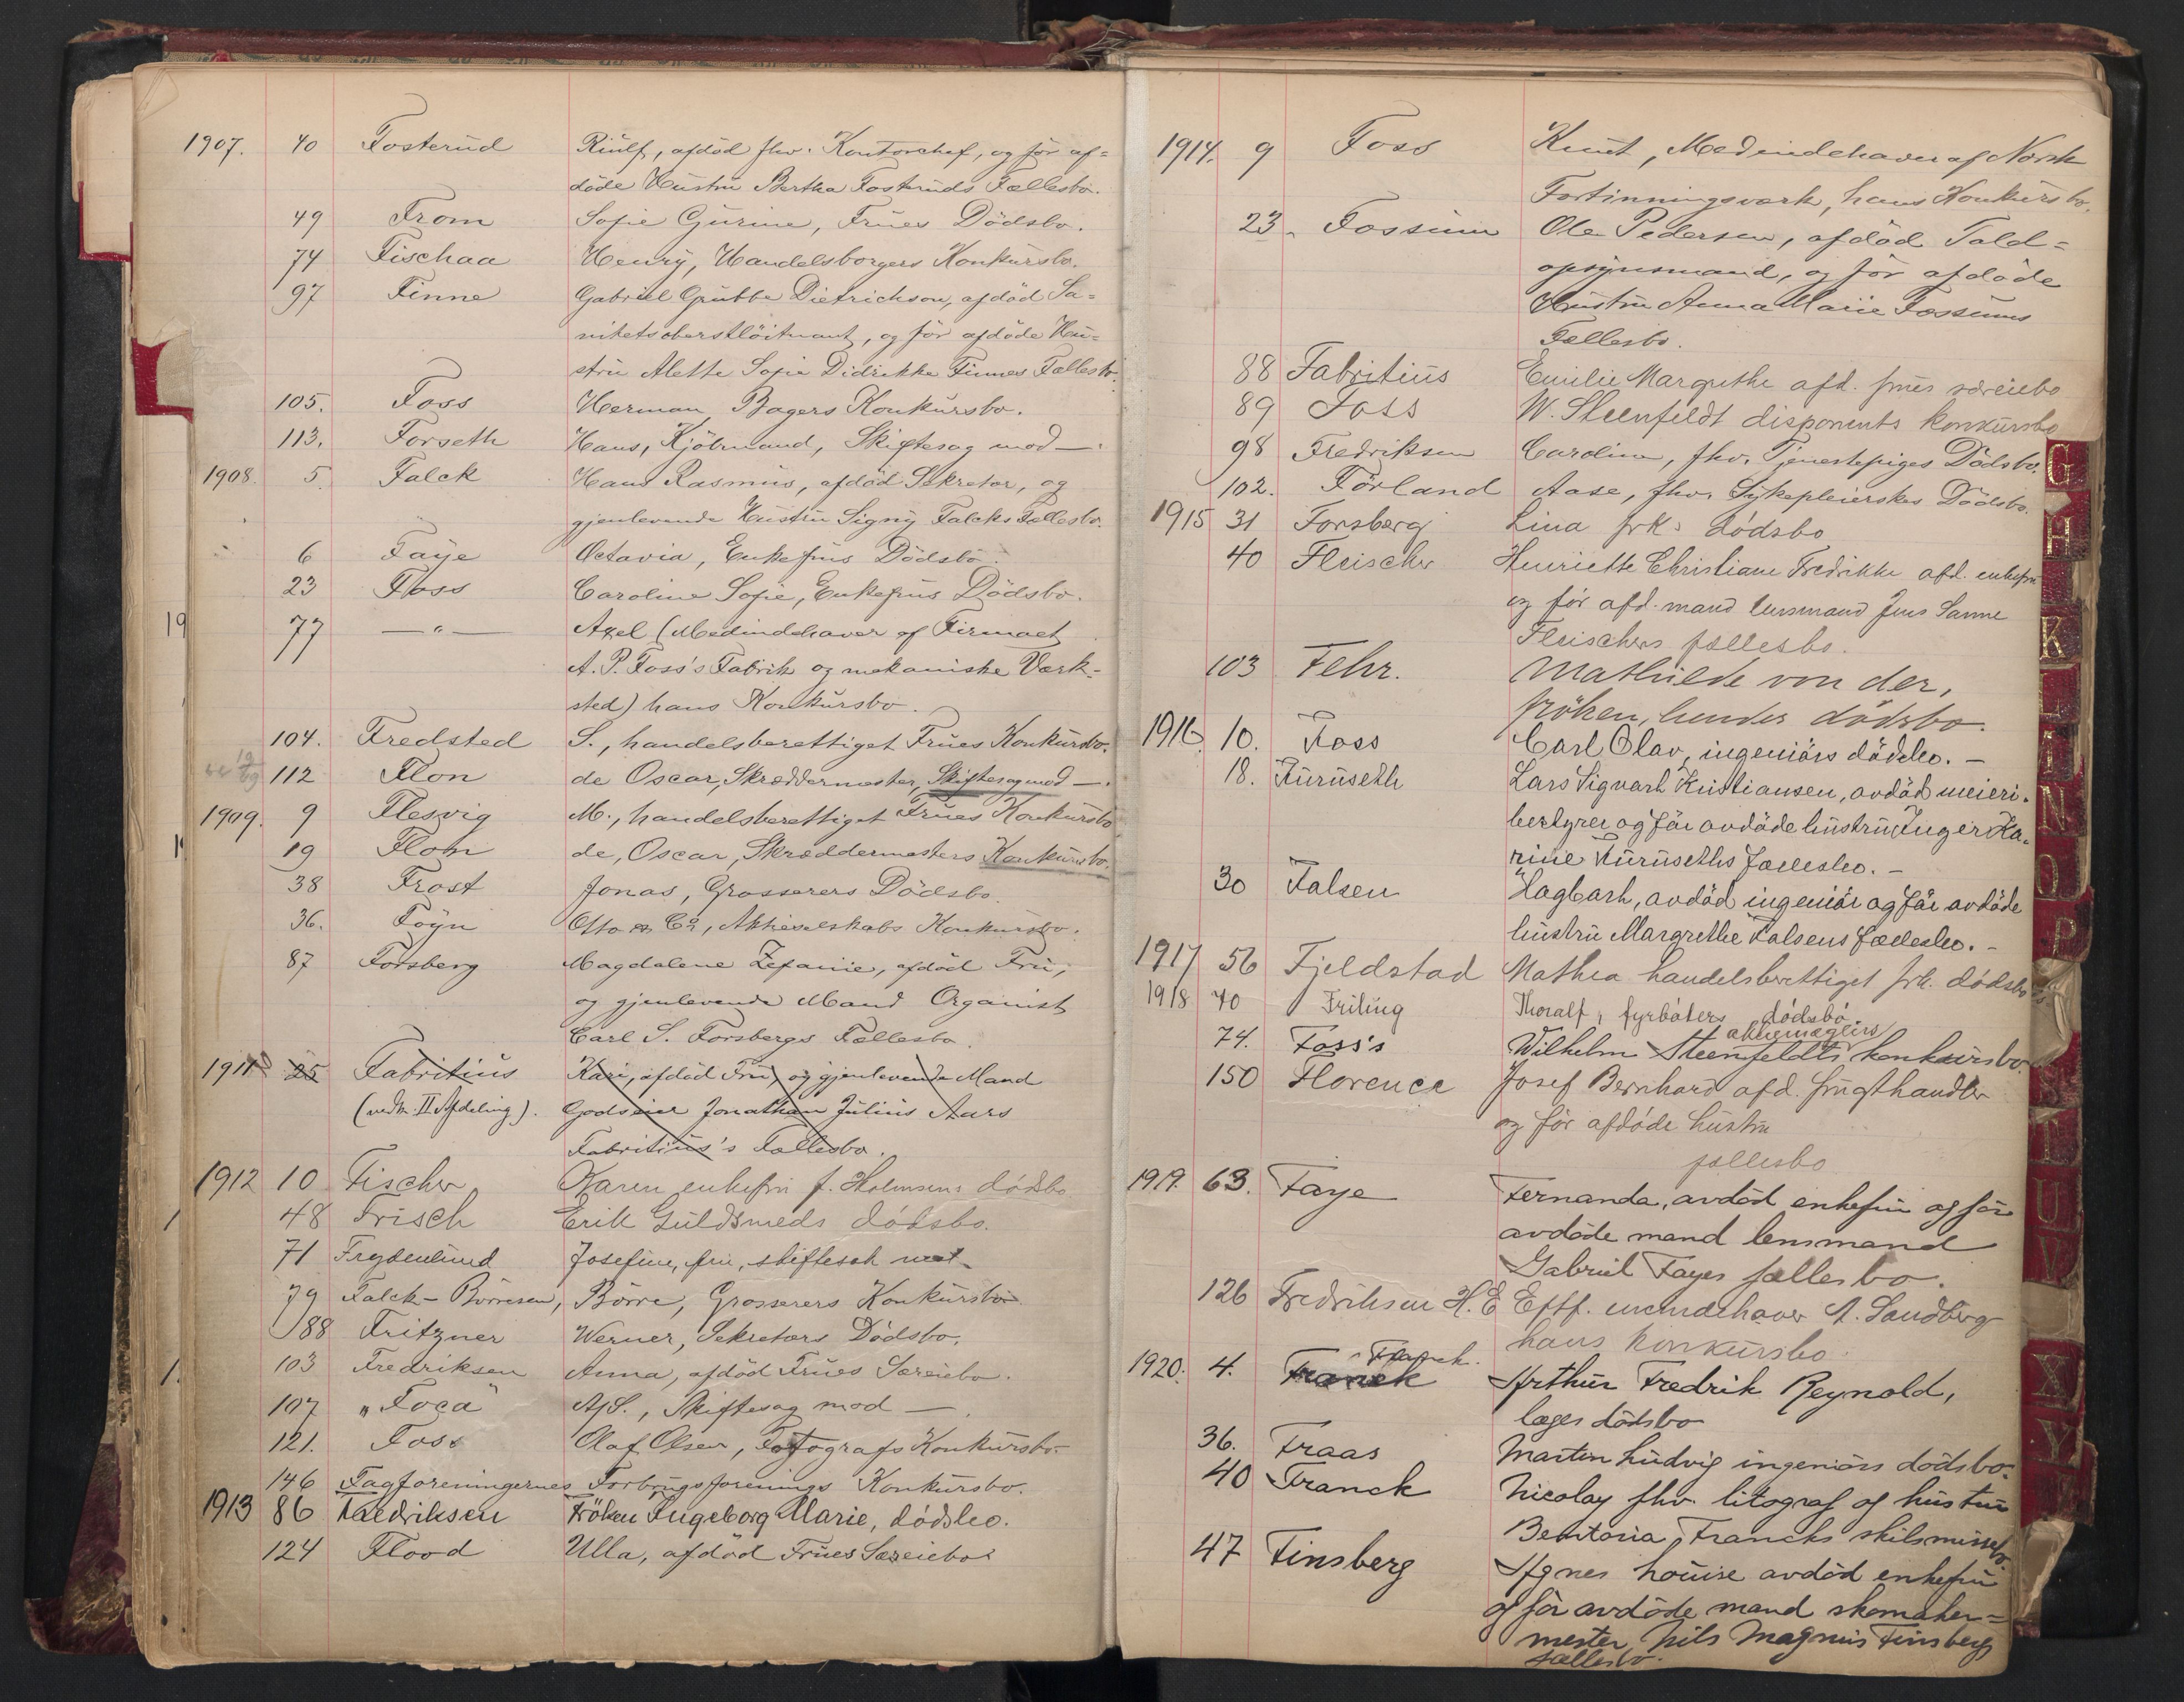 1907. 40 Fosterud Riulf, afdöd fhv. Kontorchef, ogför af=
döde Hustru Bertha Fosteruds Fællesbo.
49 From Sofie Gurine, Frues Dödsbo.
74 Fischaa Henry, Handelsborgers Konkursbo.
97 Finne Gabriel Grubbe Dietrichson, afdöd Sa=
nitetsoberstlöitnant, og för afdöde Hu=
stru Alette Sofie Didrikke Finnes Fællesbo.
105. Foss Herman, Bagers Konkursbo.
113. Forseth Hans, Kjöbmand, Skiftesag mod —.
1908. 5. Falck Hans Rasmus, afdöd Sekretær, og
gjenlevende Hustru Signy Falcks Fællesbo.
6 Faye Octavia, Enkefrus Dödsbo.
23 Foss Caroline Sofie, Enkefrus Dödsbo.
77 — " — Axel (Medindehaver af Firmaet
A. P. Foss's Fabrik og mekaniske Værk-
sted) hans Konkursbo.
104. Fredsted S., handelsberettiget Frues Konkursbo.
112 Flon de Oscar, Skræddermester, Skiftesag mod —.
1909. 9 Flesvig M., handelsberettiget Frues Konkursbo
19 Flon de, Oscar, Skræddermesters Konkursbo.
38 Frost Jonas, Grosserers Dödsbo.
36. Föyn Otto & Co, Aktieselskabs Konkursbo.
87 Forsberg Magdalene Zefanie, afdöd Fru,
og gjenlevende Mand Organist
Carl S. Forsbergs Fællesbo.
1911 25 Fabritius Kari, afdöd Fru, og gjenlevende Mand
(vedk. II Afdeling). Godseier Jonathan Julius Aars
Fabritius's Fællesbo.
1912 10 Fischer Karen enkefru f. Holmsens dödsbo
48 Frisch Erik Guldsmeds dödsbo.
71 Frydenlund Josefine, fru, skiftesak mot
79 Falck-Börresen, Börre, Grosserers Konkursbo
88 Fritzner Werner, Sekretærs Dödsbo.
103 Fredriksen Anna, afdöd Frues Særeiebo.
107 „Foca" A/S., Skiftesag mod —.
121. Foss Olaf Olsen, Fotografs Konkursbo.
146 Fagforeningernes Forbrugsforenings Konkursbo.
1913 86 Fredriksen Fröken Ingeborg Marie, dödsbo.
124 Flood Ulla, afdöd Frues Særeiebo
1914. 9 Foss Knut, Medindehaver af Norsk
Fortinningsværk, hans Konkursbo.
23. Fossum Ole Pedersen, afdöd Told=
opsynsmand, og för afdöde
Hustru Anna Marie Fossums
Fællesbo.
88 Fabritius Emilie Margrethe afd. frues særeiebo
89 Foss W. Steenfeldt disponents konkursbo
98 Fredriksen Caroline, fhv. Tjenestepiges Dödsbo.
102. Förland Aase, fhv. Sykepleierskes Dödsbo.
1915 31 Forsberg Lina frk. dödsbo
40 Fleischer Henriette Christiane Fredrikke afd. enkefru
og för afd. mand lensmand Jens Sanne
Fleischers fællesbo.
103 Fehr. Mathilde von der,
fröken, hendes dödsbo.
1916 10. Foss Carl Olav, ingeniörs dödsbo. –
18. Furuseth Lars Sigvart Kristiansen, avdöd meieri-
bestyrer og för avdöde hustru Inger Ka-
rine Furuseths fællesbo. –
30 Falsen Hagbart, avdöd ingeniör og för avdöde
hustru Margrethe Falsens fællesbo. –
1917 56 Fjeldstad Mathea handelsberettiget frk. dödsbo
1918 70 Friling Thoralf, fyrböters dödsbo.
74. Foss's Wilhelm Steenfeldts aktiemæglers konkursbo.
150 Florence Josef Bernhard afd. frugthandler
og för afdöde hustru
fællesbo
1919. 63. Faye Fernanda, avdöd enkefru og för
avdöde mand lensmand
Gabriel Fayes fællesbo.
126 Fredriksen H. E Eftf. indehaver A. Sandberg
hans konkursbo.
1920. 4. Franck Franck. Arthur Fredrik Reynold,
læges dödsbo
36. Fraas Martin Ludvig ingeniörs dödsbo.
40 Franck Nicolay fhv. litograf og hustru
Francks skilsmissebo
47 Finsberg Agnes Louise avdöd enkefru
og för avdöde mand skomaker=
mester Nils Magnus Finsbergs
fællesbo.
G
H
K
L
N
O
P
T
U
V
X
Y